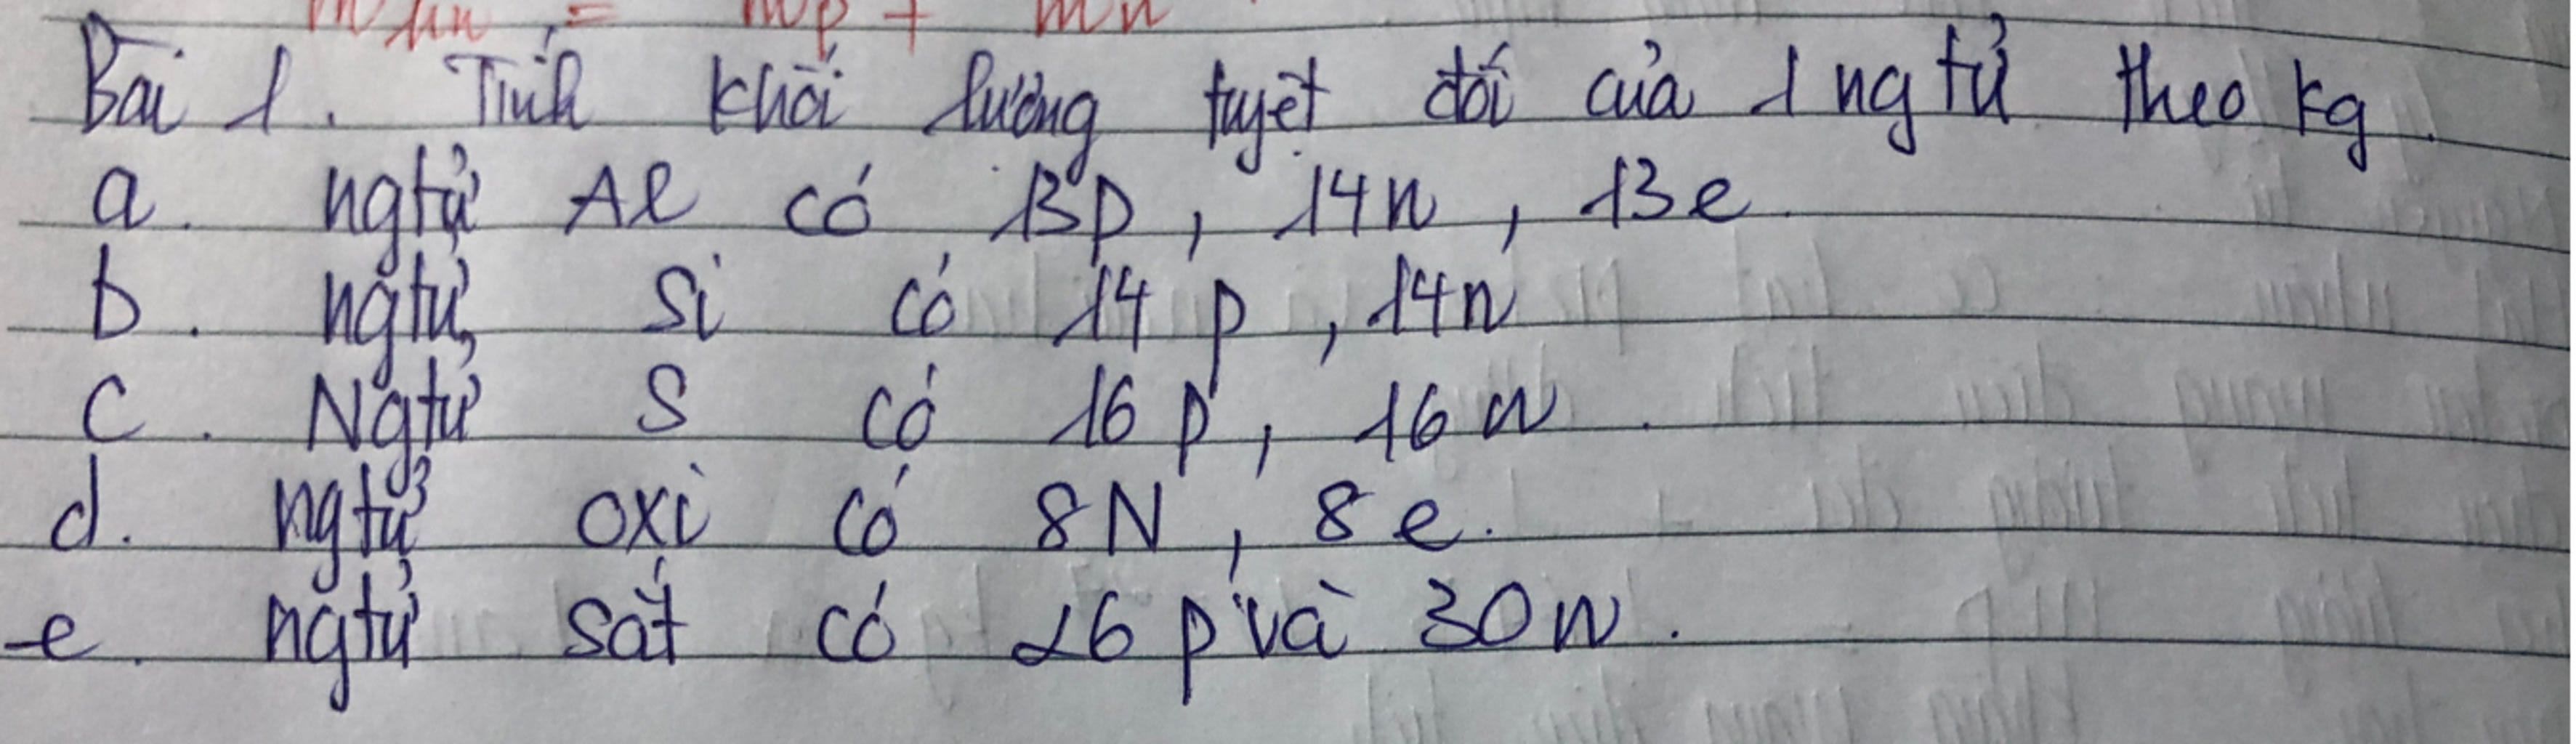 = mp + mn
Bài 1. Tính khối lượng tuyệt đối của 1 ngtử theo kg.
a. ngtử Al có 13p, 14n, 13e.
b. ngtử Si có 14 p, 14n
c. Ngtử S có 16 p, 16 n.
d. ngtử oxi có 8N, 8e.
e. ngtử sắt có 26 p và 30 n.